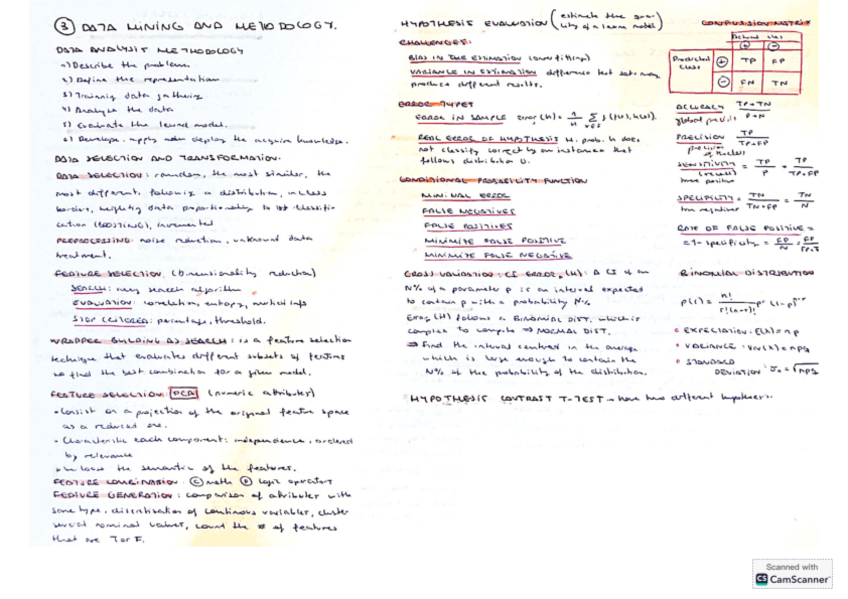 ③ DATA MINING AND METODOLOGY.
DATA ANALYSIS METHODOLOGY
1) Describe the problem.
2) Define the representation
3) Training data gathering
4) Analyse the data
5) Evaluate the learned model.
6) Develope, apply and deploy the acquire knowledge.
DATA SELECTION AND TRANSFORMATION.
DATA SELECTION: random, the most similar, the
most different, following a distribution, in class
borders, weighting data proportionally to classifi-
cation (BOOSTING), incremental
PREPROCESSING: noise reduction, unknown data
treatment.
FEATURE SELECTION. (Dimensionality reduction)
SEARCH: any search algorithm
EVALUATION: correlation, entropy, mutual info
STOP CRITERIA: percentage, threshold.
WRAPPER BUILDING AS SEARCH: is a feature selection
technique that evaluates different subsets of features
to find the best combination for a given model.
FEATURE SELECTION: PCA (numeric attributes)
• Consist on a projection of the original feature space
as a reduced one.
• Characteristic each component: independence, ordered
by relevance
• we loose the semantic of the features.
FEATURE COMBINATION: math logic operators
FEATURE GENERATION: comparison of attributes with
same type, discretisation of continuous variables, cluster
several nominal values, count the # of features
that are T or F.
HYPOTHESIS EVALUATION (estimate the qua-
lity of a learned model)
CHALLENGES:
BIAS IN THE ESTIMATION (overfitting)
VARIANCE IN ESTIMATION difference test sets may
produce different results.
ERROR TYPES
ERROR IN SAMPLE error(h) = 1/n Σ x∈S δ(f(x), h(x)).
REAL ERROR OF HYPOTHESIS H. prob. h does
not classify correctly an instance that
follows distribution D.
CONDITIONAL PROBABILITY FUNCTION
MINIMAL ERROR
FALSE NEGATIVES
FALSE POSITIVES
MINIMIZE FALSE POSITIVE
MINIMIZE FALSE NEGATIVE
CROSS VALIDATION: CI ERROR (H): A CI of an
N% of a parameter p is an interval expected
to contain p with a probability N%
Error (H) follows a BINOMIAL DIST. which is
complex to compute ⇒ NORMAL DIST.
⇒ Find the interval centred in the average
which is large enough to contain the
N% of the probability of the distribution.
HYPOTHESIS CONTRAST T-TEST → have two different hypotheses.
CONFUSSION MATRIX
Actual class
+ -
Predicted class + TP FP
- FN TN
ACCURACY TP+TN / P+N
PRECISION TP / TP+FP
SENSITIVITY = TP / P = TP / TP+FN
(recall)
true positive
SPECIFICITY = TN / TN+FP = TN / N
true negatives
RATE OF FALSE POSITIVE =
= 1 - specificity = FP / N
BINOMIAL DISTRIBUTION
p(r) = n! / r!(n-r)! p^r (1-p)^n-r
• EXPECTATION: E(X) = np
• VARIANCE: Var(X) = npq
• STANDARD
DEVIATION: σx = √npq
Scanned with
CS CamScanner